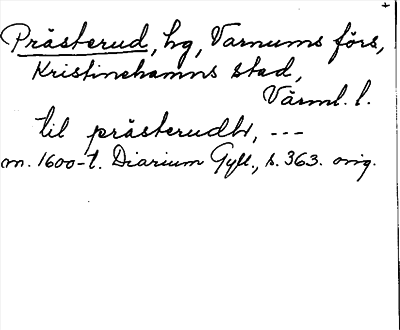 Prästerud, hg, Varnums förs,
Kristinehamns stad,
Värml. l.
til prästerudh, ---
m. 1600-t. Diarium Gyll., s. 363. orig.